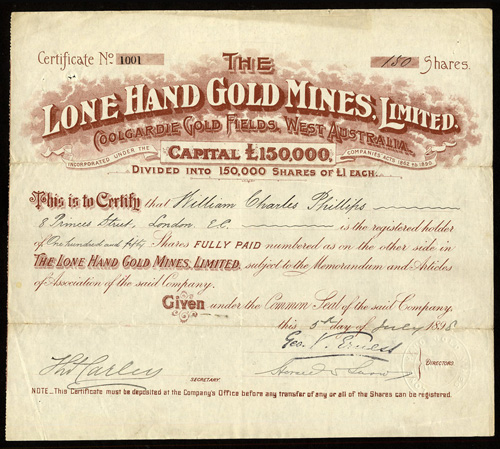 Certificate No. 1001 150 Shares.
THE
LONE HAND GOLD MINES, LIMITED.
COOLGARDIE GOLD FIELDS, WEST AUSTRALIA.
INCORPORATED UNDER THE COMPANIES ACTS 1862 TO 1890.
CAPITAL £150,000.
DIVIDED INTO 150,000 SHARES OF £1 EACH.
This is to Certify that William Charles Phillips
8 Princes Street, London. E.C. is the registered holder
of One hundred and fifty Shares FULLY PAID numbered as on the other side in
THE LONE HAND GOLD MINES, LIMITED, subject to the Memorandum and Articles
of Association of the said Company.
Given under the Common Seal of the said Company,
this 5th day of July 1895
Geo. V.
DIRECTORS
SECRETARY.
NOTE...This Certificate must be deposited at the Company's Office before any transfer of any or all of the Shares can be registered.